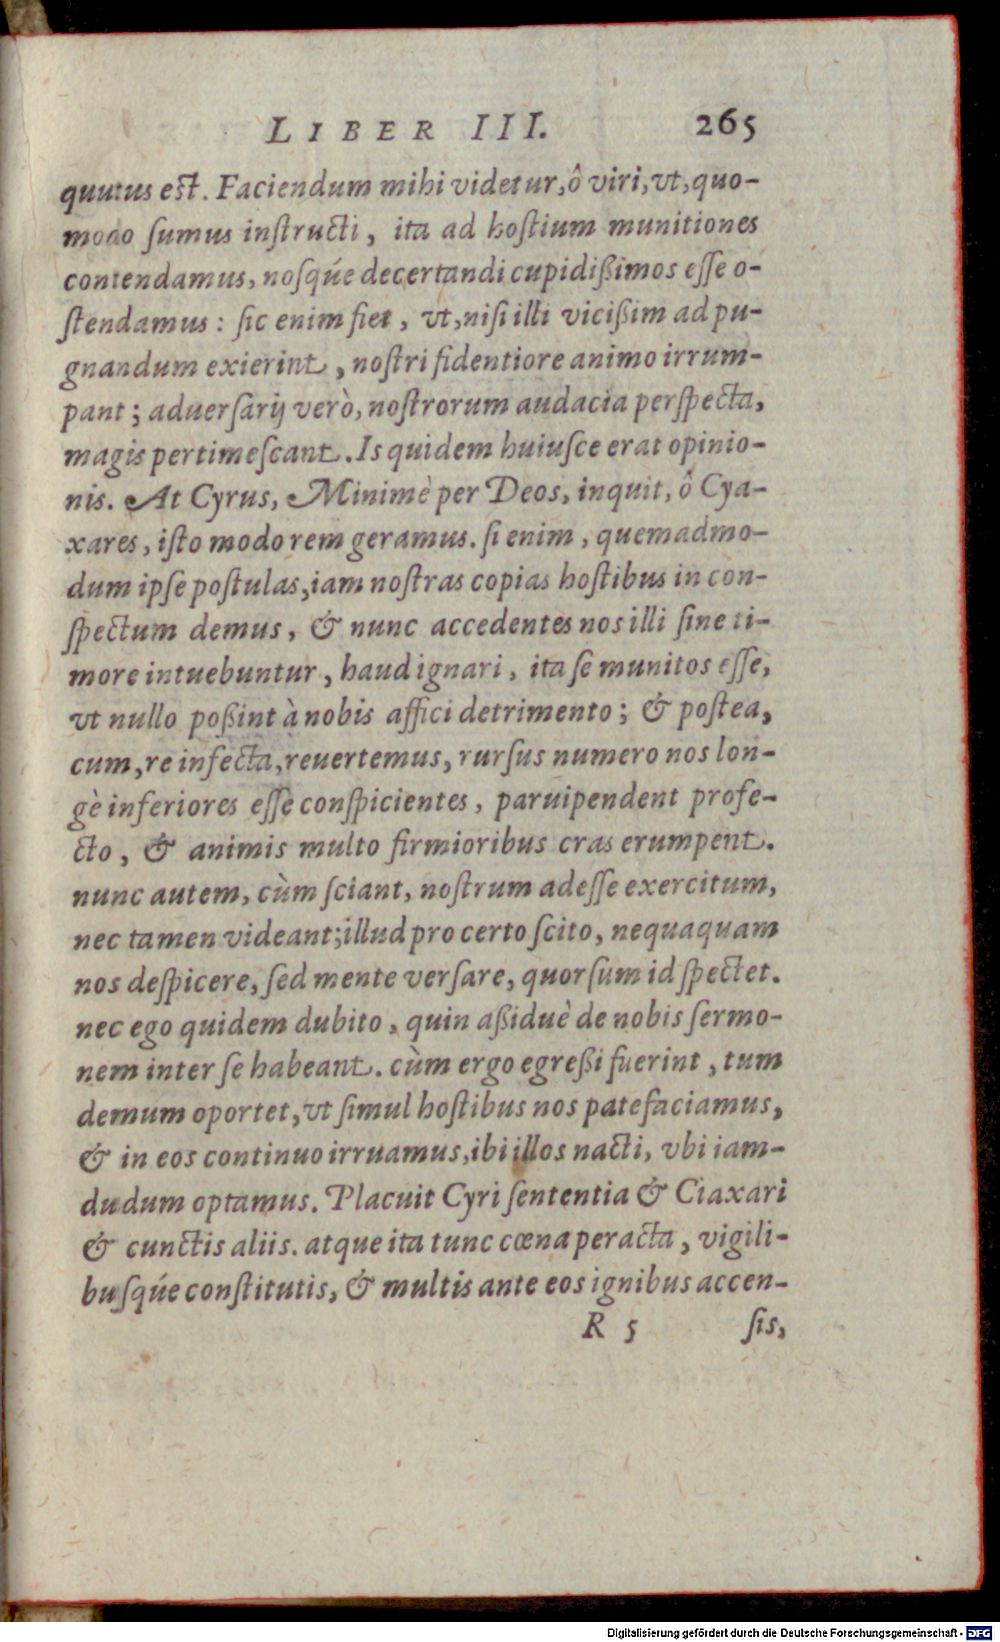 LIBER III. 265
quutus est. Faciendum mihi videtur, ô viri, vt, quo-
modo ſumus inſtructi, ita ad hoſtium munitiones
contendamus, noſqúe decertandi cupidißimos eſſe o-
ſtendamus: ſic enim fiet, vt, niſi illi vicißim ad pu-
gnandum exierint, noſtri fidentiore animo irrum-
pant; aduerſarij verò, noſtrorum audacia perſpecta,
magis pertimeſcant. Is quidem huiuſce erat opinio-
nis. At Cyrus, Minimè per Deos, inquit, ô Cya-
xares, iſto modo rem geramus. ſi enim, quemadmo-
dum ipſe poſtulas, iam noſtras copias hoſtibus in con-
ſpectum demus, & nunc accedentes nos illi ſine ti-
more intuebuntur, haud ignari, ita ſe munitos eſſe,
vt nullo poßint à nobis affici detrimento; & poſtea,
cum, re infecta, reuertemus, rurſus numero nos lon-
gè inferiores eſſe conſpicientes, paruipendent profe-
cto, & animis multo firmioribus cras erumpent.
nunc autem, cùm ſciant, noſtrum adeſſe exercitum,
nec tamen videant; illud pro certo ſcito, nequaquam
nos deſpicere, ſed mente verſare, quorſum id ſpectet.
nec ego quidem dubito, quin aßiduè de nobis ſermo-
nem inter ſe habeant. cùm ergo egreßi fuerint, tum
demum oportet, vt ſimul hoſtibus nos patefaciamus,
& in eos continuo irruamus, ibi illos nacti, vbi iam-
dudum optamus. Placuit Cyri ſententia & Ciaxari
& cunctis aliis. atque ita tunc cœna peracta, vigili-
buſqúe conſtitutis, & multis ante eos ignibus accen-
R 5 ſis,
Digitalisierung gefördert durch die Deutsche Forschungsgemeinschaft - DFG